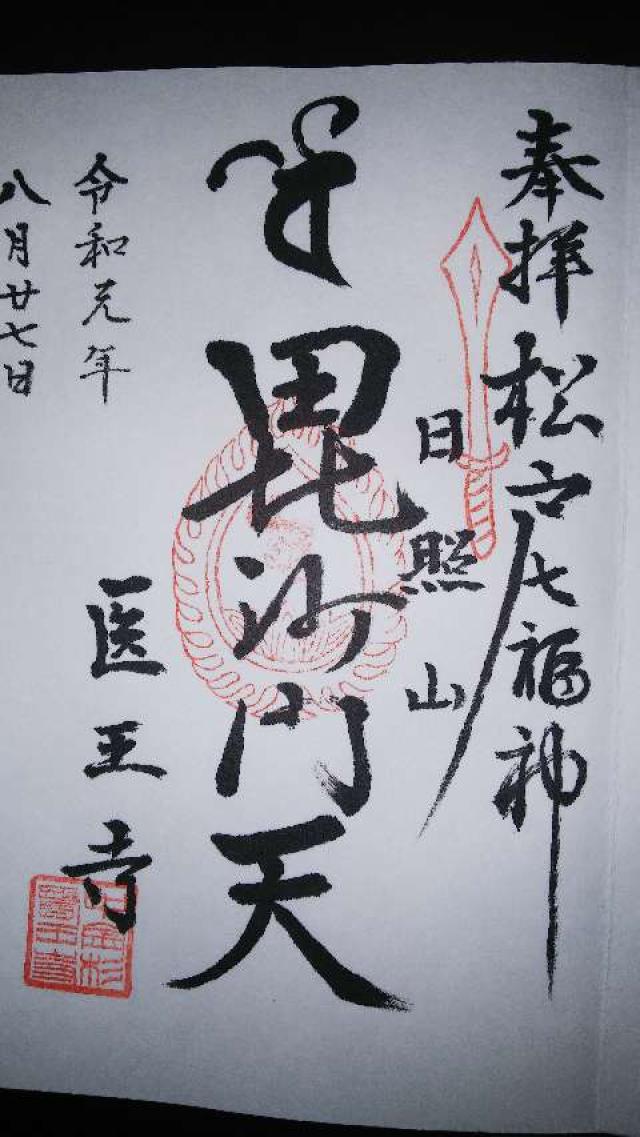 奉拝 松戸七福神
日照山
毘沙門天
令和元年
八月廿七日
医王寺